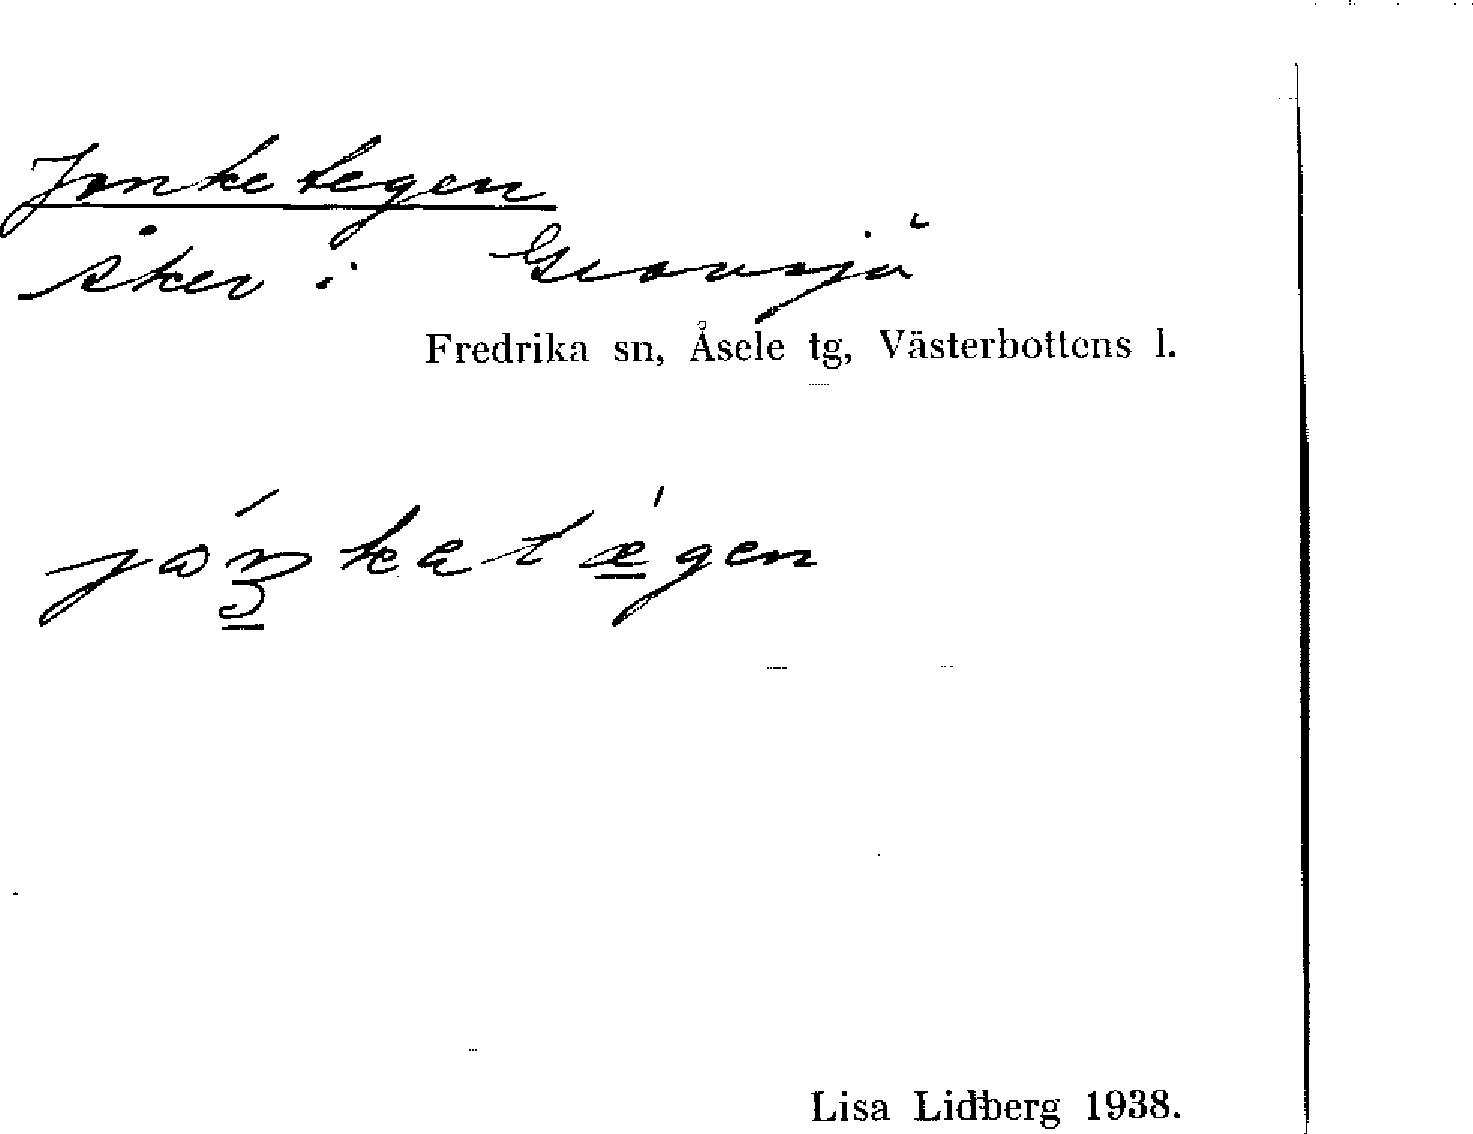 Jonketegen
åker i Gransjö
Fredrika sn, Åsele tg, Västerbottens l.
Lisa Lidberg 1938.